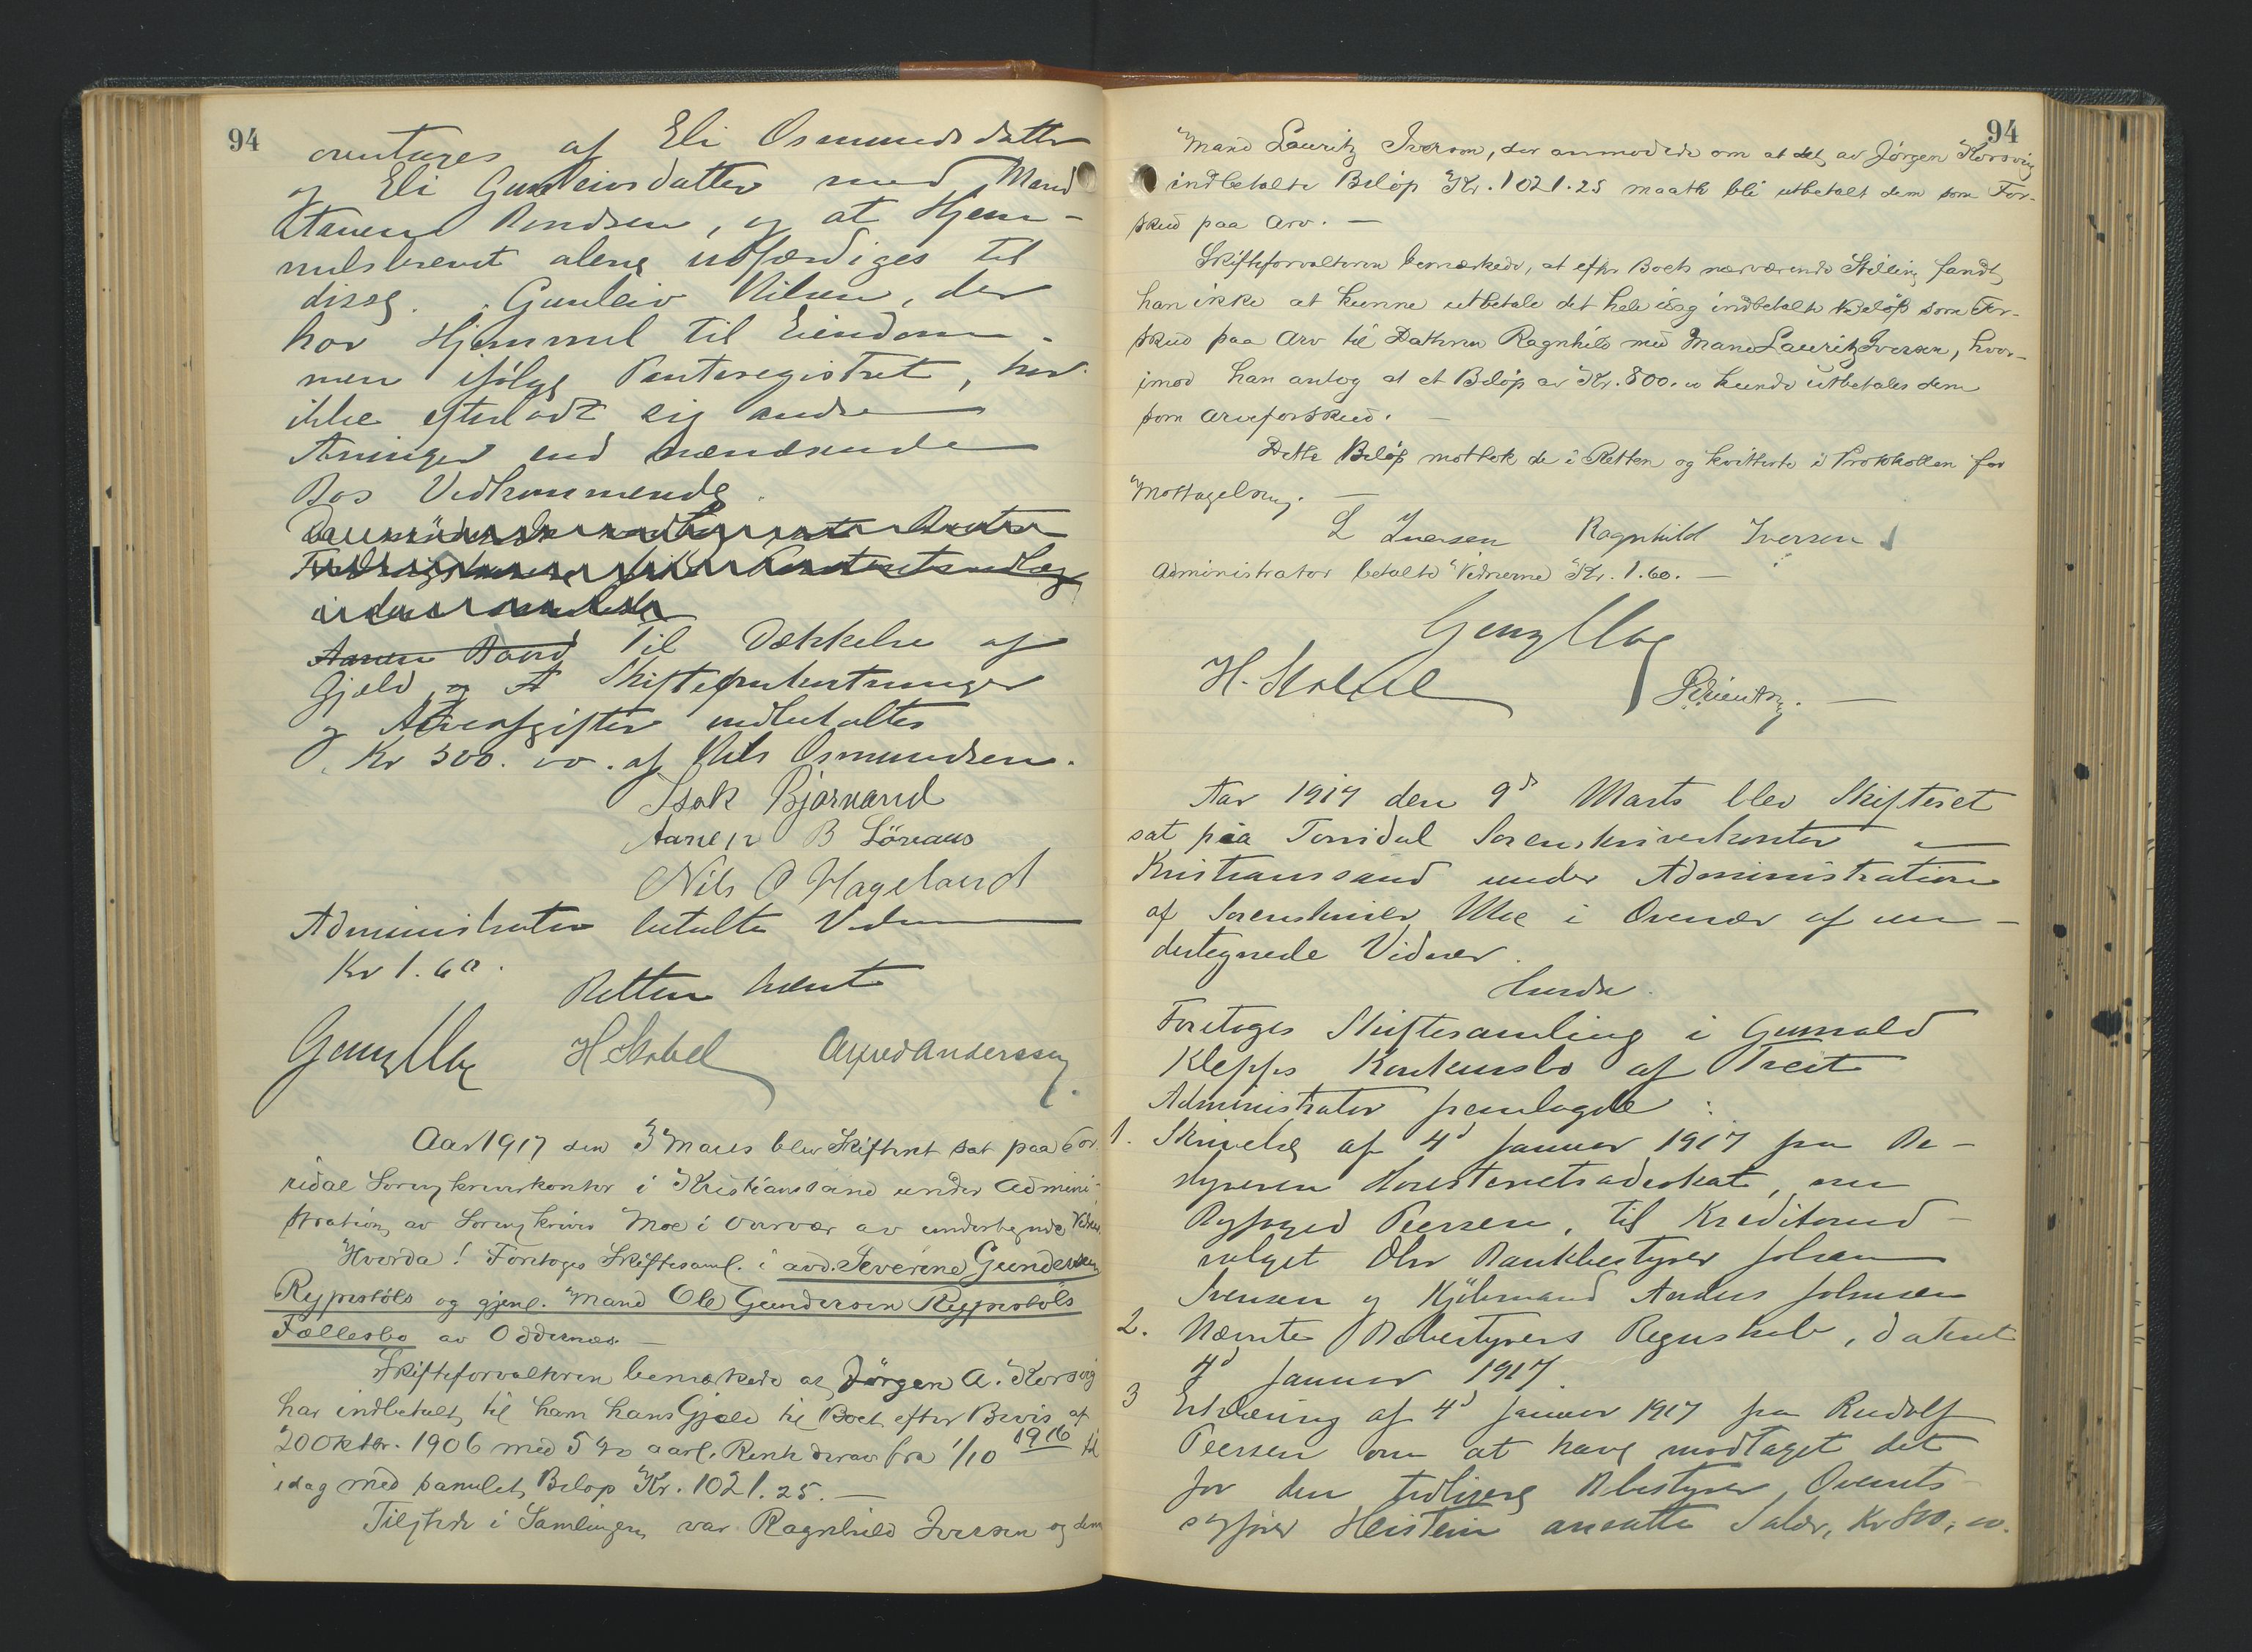 94
overtages af Eli Osmundsdatter
og Eli Gunleivsdatter med Mand
Aanen Knudsen, og at Hjem-
melsbrevet alene udfærdiges til
disse. Gunleiv Nilsen, der
har Hjemmel til Eiendom-
men ifølge Panteregistret, har
ikke efterladt sig andre
Arvinger end nærværende
Bos Vedkommende.
Aanen Baard Til Dækkelse af
Gjæld og Skifteomkostninger
og Arveafgifter indbetaltes
Kr 500.00. af Nils Osmundsen.
Isak Bjorvand
Aanen B Løvaas
Nils O Hageland
Administrator betalte Vidnerne
Kr 1.60.
Retten hævet
Georg Moe H Skobel Alfred Anderssen
Aar 1917 den 3 Marts blev Skifteret sat paa Tor-
ridal Sorenskriverkontor i Kristianssand under Admini-
stration av Sorenskriver Moe i Overvær av undertegnede Vidner.
Hvorda! Foretoges Skiftesaml. i avd. Severine Gundersen
Rypestøls og gjenl. Mand Ole Gundersen Rypestøls
Fællesbo av Oddernæs. —
Skifteforvalteren bemærkede at Jørgen A. Korsvig
har indbetalt til ham hans Gjæld til Boet efter Bevis af
20 Oktbr. 1906 med 5 % aarl. Rente derav fra 1/10 1916 til
idag med samlet Beløp Kr. 1021.25. —
Tilstede i Samlingen var Ragnhild Iversen og dennes
94
Mand Lauritz Iverson, der anmodede om at det av Jørgen Korsvig
indbetalte Beløp Kr. 1021.25 maatte bli utbetalt dem som For-
skud paa Arv. —
Skifteforvalteren bemærkede, at efter Boets nærværende Stilling fandt
han ikke at kunne utbetale det hele idag indbetalte Beløp som For-
skud paa Arv til Datteren Ragnhild med Mand Lauritz Iversen, hvor-
imod han antog at et Beløp av Kr. 800.00 kunde utbetales dem
som Arveforskud. —
Dette Beløp mottok de i Retten og kvitterte i Protokollen for
Mottagelsen. —
L Iversen Ragnhild Iversen
Administrator betalte Vidnerne Kr. 1.60. —
Georg Moe
H. Skobel
Aar 1917 den 9de Marts blev Skifteret
sat paa Torridal Sorenskriverkontor i
Kristianssand under Administration
af Sorenskriver Moe i Overvær af un-
dertegnede Vidner.
Hvorda.
Foretoges Skiftesamling i Gunvald
Klepps Konkursbo af Treit
Administrator fremlagde:
1. Skrivelse af 4d Januar 1917 fra Be-
styreren Høiesteretsadvokat, nu
Byfoged Peersen, til Kreditorud-
valget Dhr Bankbestyrer Johan
Svensen og Kjøbmand Anders Johnsen
2. Nævnte Bobestyrers Regnskab, dateret
4d Januar 1917.
3 Erklæring af 4d Januar 1917 fra Rudolf
Peersen om at have modtaget det
for den tidligere Bobestyrer Overrets-
sagfører Heistein ansatte Salær, Kr 800,00.